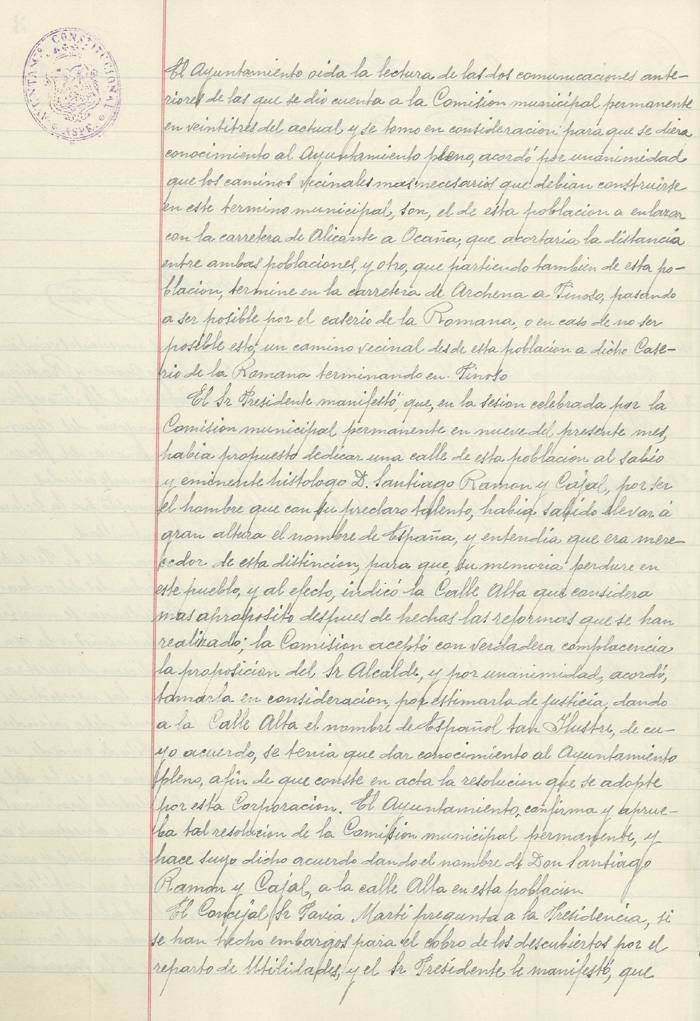 AYUNTAMTO CONSTITUCIONAL
ASPE
El Ayuntamiento oida la lectura de las dos comunicaciones ante-
riores de las que se dio cuenta a la Comision municipal permanente
en veintitres del actual y se tomo en consideracion para que se diera
conocimiento al Ayuntamiento pleno, acordó por unanimidad
que los caminos vecinales mas necesarios que debian construirse
en este termino municipal, son, el de esta poblacion a enlazar
con la carretera de Alicante a Ocaña, que acortaria la distancia
entre ambas poblaciones, y otro, que partiendo tambien de esta po-
blacion, termine en la carretera de Archena a Pinoso, pasando
a ser posible por el caserio de la Romana, o en caso de no ser
posible esto, un camino vecinal desde esta poblacion a dicho Case-
rio de la Romana terminando en Pinoso
El Sr Presidente manifestó, que, en la sesion celebrada por la
Comision municipal permanente en nueve del presente mes,
habia propuesto dedicar una calle de esta poblacion al sabio
y eminente histologo D. Santiago Ramon y Cajal, por ser
el hombre que con su preclaro talento, habia sabido elevar á
gran altura el nombre de España, y entendía que era mere-
cedor de esta distincion, para que, su memoria perdure en
este pueblo, y al efecto, indicó la Calle Alta que considera
mas apropósito despues de hechas las reformas que se han
realizado; la Comision aceptó con verdadera complacencia
la proposicion del Sr Alcalde, y por unanimidad, acordó,
tomarla en consideracion, por estimarla de justicia, dando
a la Calle Alta el nombre de Español tan Ilustre, de cu-
yo acuerdo, se tenia que dar conocimiento al Ayuntamiento
pleno, a fin de que conste en acta la resolucion que se adopte
por esta Corporacion. El Ayuntamiento, confirma y aprue-
ba tal resolucion de la Comision municipal permanente, y
hace suyo dicho acuerdo dando el nombre de Don Santiago
Ramon y Cajal, a la calle Alta en esta poblacion
El Concejal Sr Pavia Marti pregunta a la Presidencia, si
se han hecho embargos para el cobro de los descubiertos por el
reparto de Utilidades, y el Sr Presidente le manifestó, que